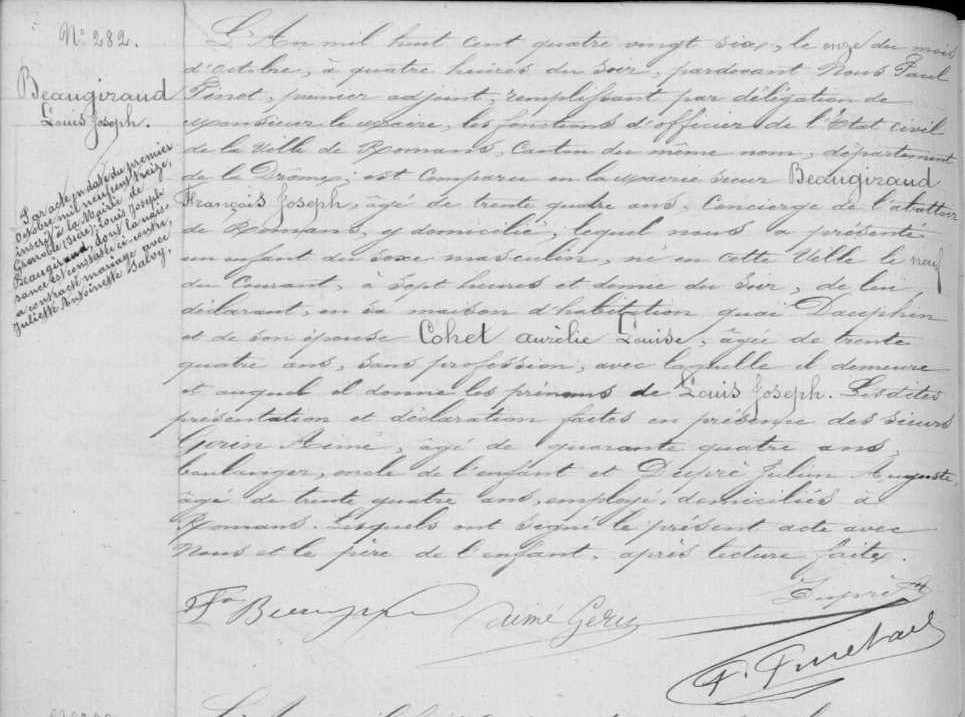 N° 282.
Beaugiraud
Louis Joseph.
Par acte en date du premier
Octobre mil neuf cent treize,
inscrit à la Mairie de
Grenoble (Isère), Louis Joseph
Beaugiraud, dont la nais-
sance est constatée ci-contre,
a contracté mariage avec
Juliette Antoinette Salvy.
L'An mil huit cent quatre vingt six, le onze du mois
d'octobre, à quatre heures du soir, pardevant Nous Paul
Finet, premier adjoint, remplissant par délégation de
Monsieur le Maire, les fonctions d'officier de l'Etat civil
de la Ville de Romans, Canton du même nom, département
de la Drôme; est Comparu en la Mairie sieur Beaugiraud
François Joseph, âgé de trente quatre ans, Concierge de l'abattoir
de Romans, y domicilié, lequel nous a présenté
un enfant du sexe masculin, né en cette Ville le neuf
du Courant, à Sept heures et demie du Soir, de lui
déclarant, en sa maison d'habitation quai Dauphin
et de son épouse Cohet Aurélie Louise, âgée de trente
quatre ans, sans profession, avec laquelle il demeure
et auquel il donne les prénoms de Louis Joseph. Lesdites
présentation et déclaration faites en présence des sieurs
Gorin Aimé, âgé de quarante quatre ans,
boulanger, oncle de l'enfant et Dupré Julien Auguste,
âgé de trente quatre ans, employé, domiciliés à
Romans. Lesquels ont signé le présent acte avec
Nous et le père de l'enfant, après lecture faite.
Dupré
Aimé